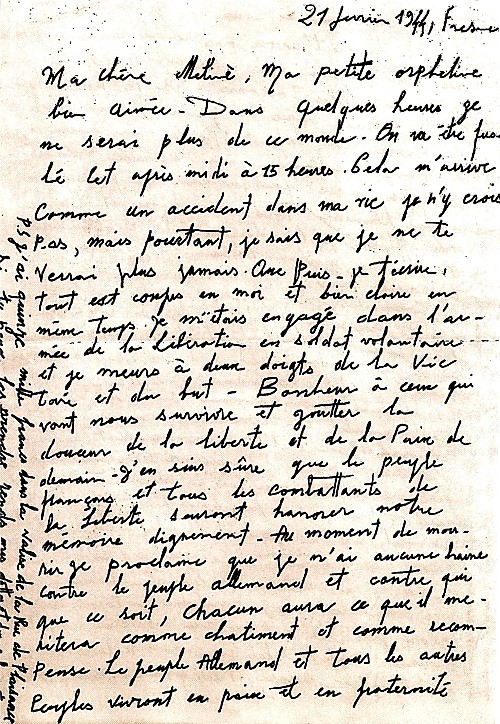 21 fevrier 1944, Fresne
Ma chère Méliné, Ma petite orpheline
bien aimée. Dans quelques heures je
ne serai plus de ce monde. On va être fusi
lé cet après midi à 15 heures. Cela m'arrive
Comme un accident dans ma vie je n'y crois
Pas, mais pourtant, je sais que je ne te
Verrai plus jamais. Que Puis-je t'écrire,
tout est confus en moi et bien claire en
même temps. Je m'étais engagé dans l'ar-
mée de la liberation en soldat volontaire
et je meurs à deux doigts de la Vic
toire et du but - Bonheur à ceux qui
vont nous survivre et goutter la
douceur de la liberté et de la Paix de
demain. J'en suis sûre que le peuple
français et tous les combattants de
la Liberté sauront honorer notre
mémoire dignement. Au moment de mou-
rir je proclame que je n'ai aucune haine
contre le peuple allemand et contre qui
que ce soit, Chacun aura ce qu'il me-
ritera comme chatiment et comme recom-
Pense. Le peuple Allemand et tous les autres
Peuples vivront en paix et en fraternité
P.S. J'ai quinze mille francs dans la valise de la Rue de Plaisance
Si tu peux les prendre rends mes dettes et